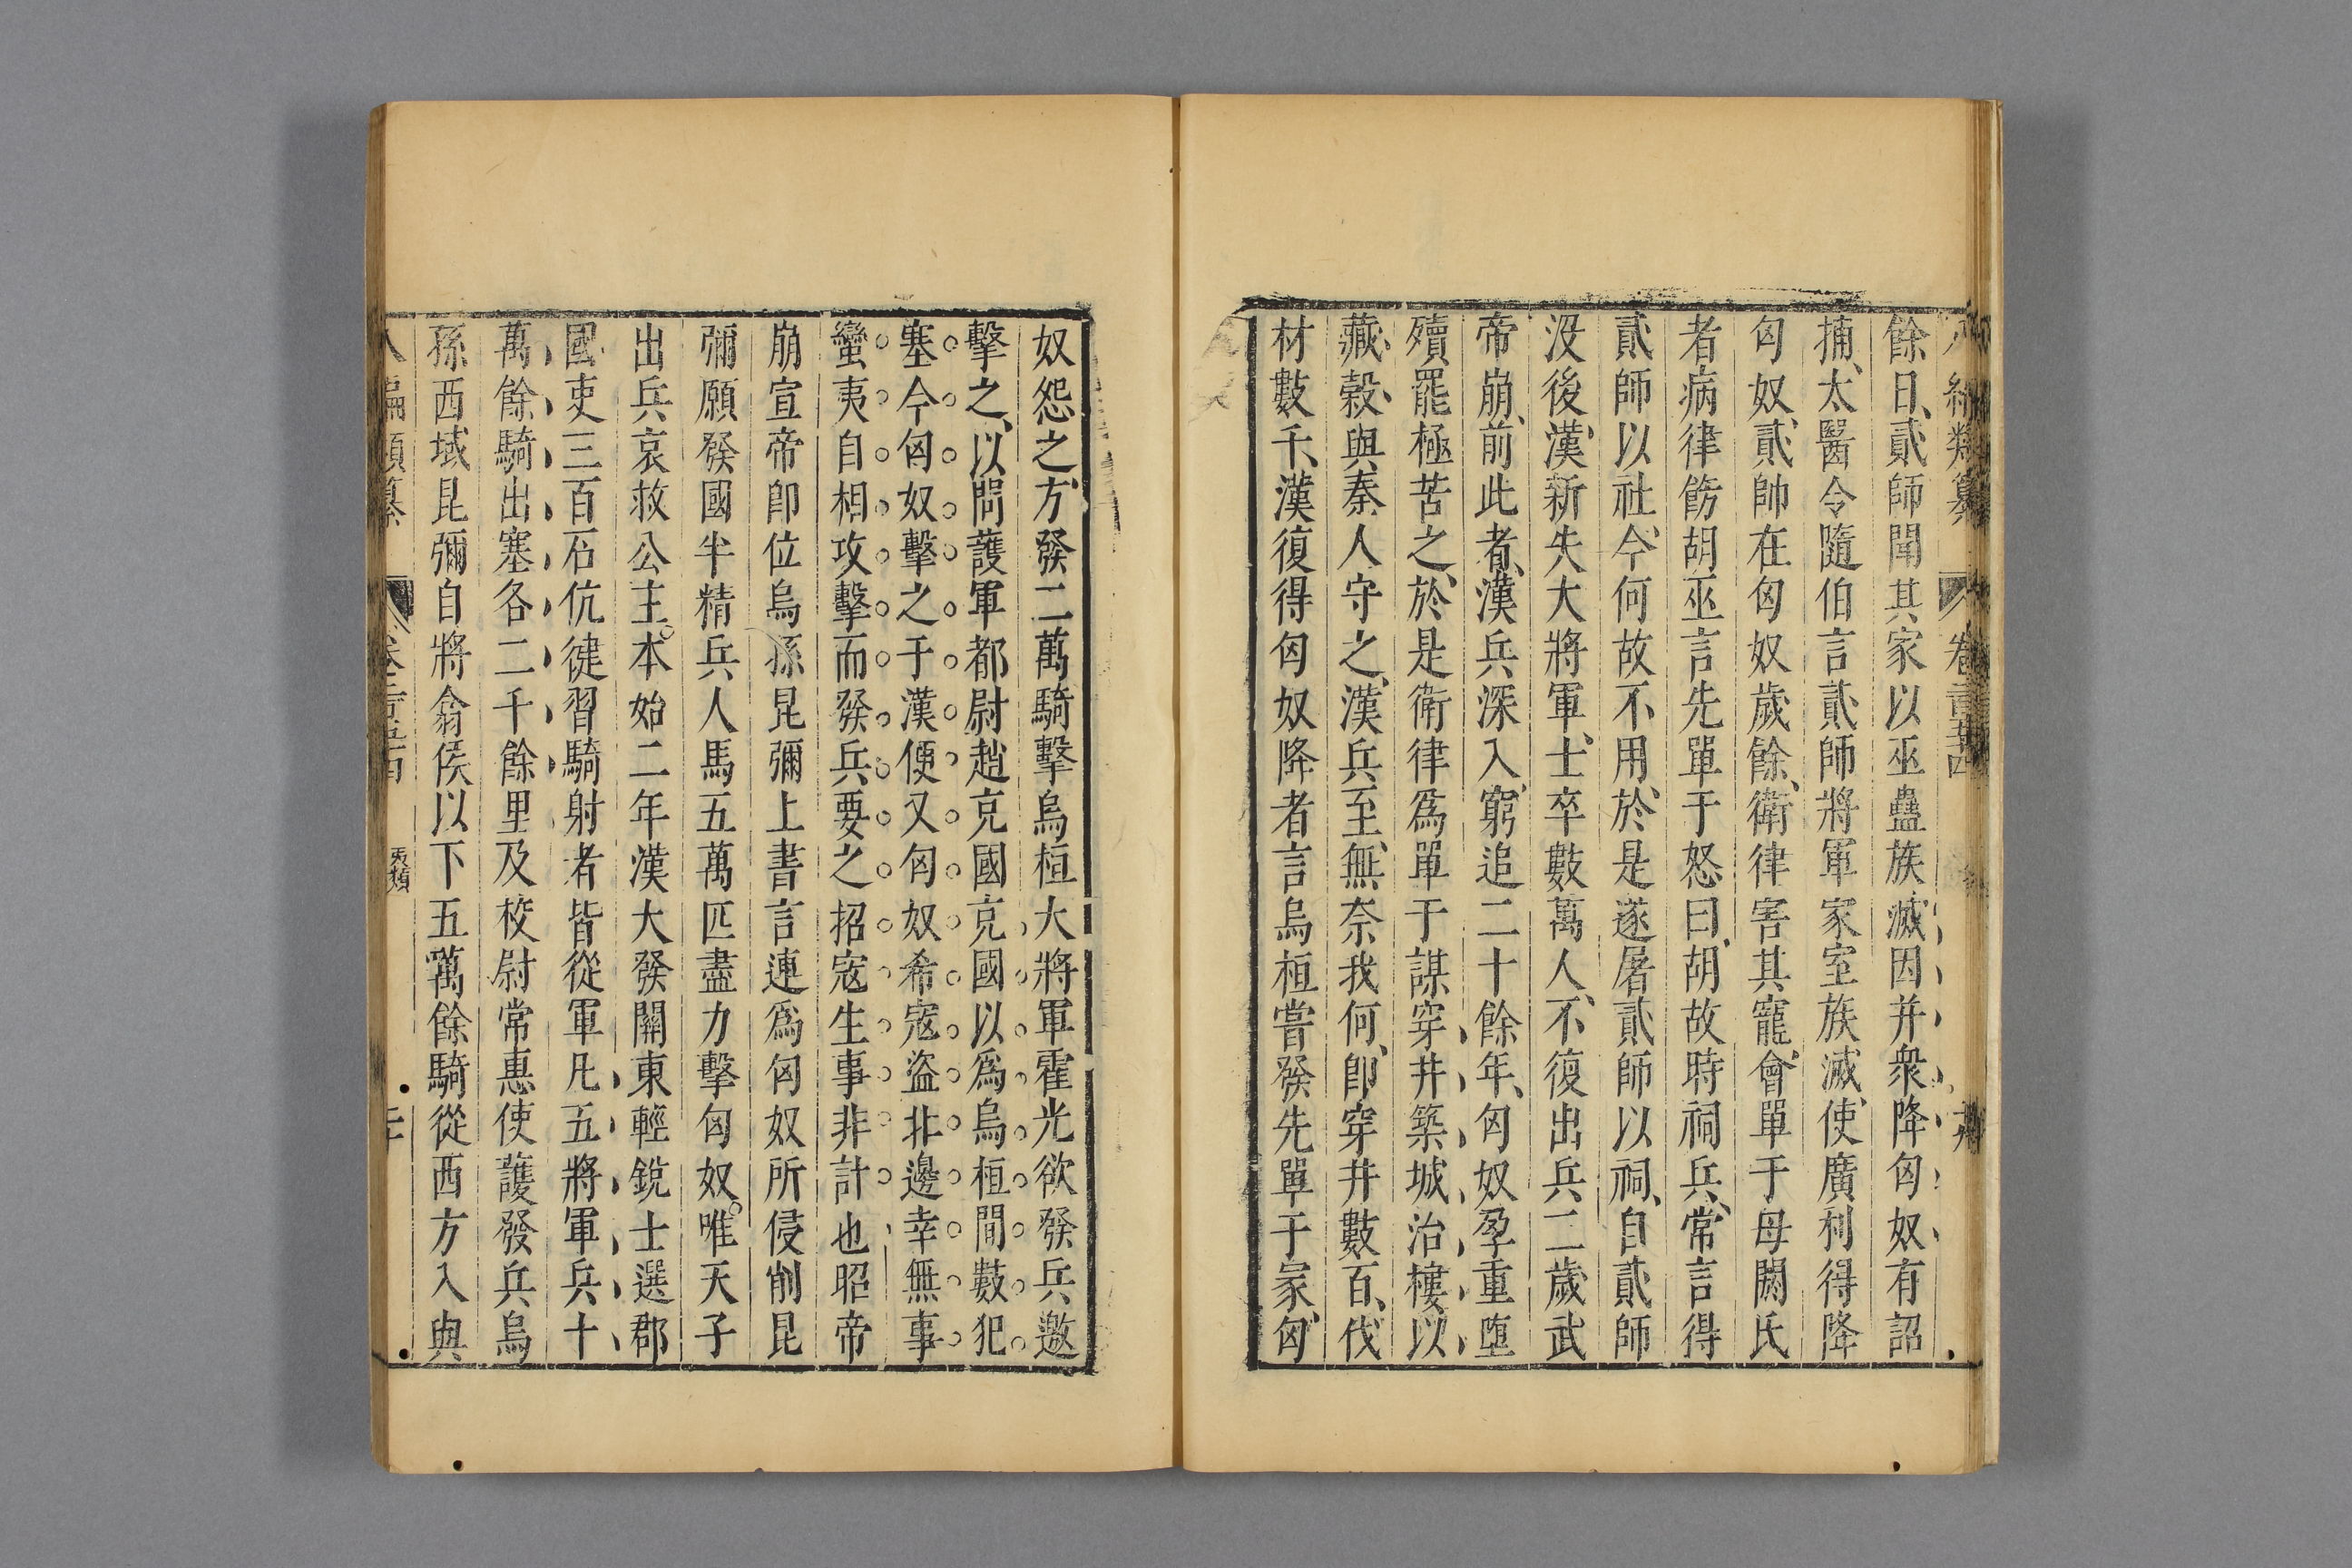 八編類纂 卷二百五十四 十九
餘日、貳師聞其家以巫蠱族滅因并衆降匈奴有詔
捕、太醫令隨伯言貳師將軍家室族滅、使廣利得降
匈奴、貳帥在匈奴歲餘、衛律害其寵、會單于母閼氏
者病律飭胡巫言先單于怒曰、胡故時祠兵、常言得
貳師以社、今何故不用、於是遂屠貳師以祠、自貳師
沒後、漢新失大將軍、士卒數萬人、不復出兵二歲武
帝崩、前此者、漢兵深入、窮追二十餘年、匈奴孕重墮
殰罷極苦之、於是衛律爲單于謀穿井築城治樓、以
藏穀、與秦人守之、漢兵至、無奈我何、卽穿井數百、伐
材數千、漢復得匈奴降者言烏桓嘗發先單于冢、匈
奴怨之、方發二萬騎擊烏桓大將軍霍光欲發兵邀
擊之、以問護軍都尉趙充國充國以爲烏桓間數犯
塞今匈奴擊之于漢便又匈奴希寇盜北邊幸無事
蠻夷自相攻擊而發兵要之招寇生事非計也昭帝
崩宣帝卽位烏孫昆彌上書言連爲匈奴所侵削昆
彌願發國半精兵人馬五萬匹盡力擊匈奴。唯天子
出兵哀救公主。本始二年漢大發關東輕銳士選郡
國吏三百石伉健習騎射者皆從軍凡五將軍兵十
萬餘騎出塞各二千餘里及校尉常惠使護發兵烏
孫西域昆彌自將翕侯以下五萬餘騎從西方入與
八編類纂